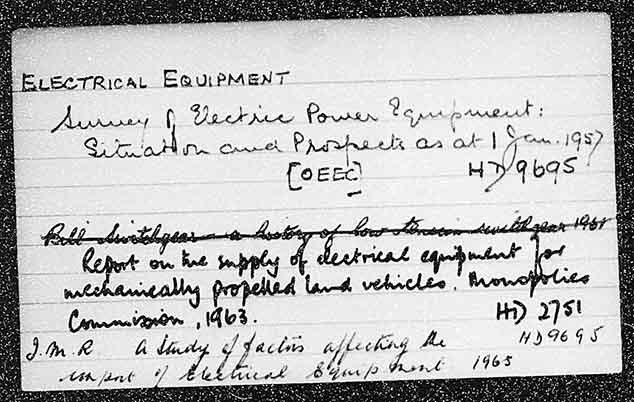 ELECTRICAL EQUIPMENT
Survey of Electric Power Equipment:
Situation and Prospects as at 1 Jan. 1957
[OEEC] HD9695
Bill Switchgear - a history of low tension switchgear 1961
Report on the supply of electrical equipment for
mechanically propelled land vehicles. Monopolies
Commission, 1963. HD 2751
I.M.R. A Study of factors affecting the HD9695
import of Electrical Equipment 1965